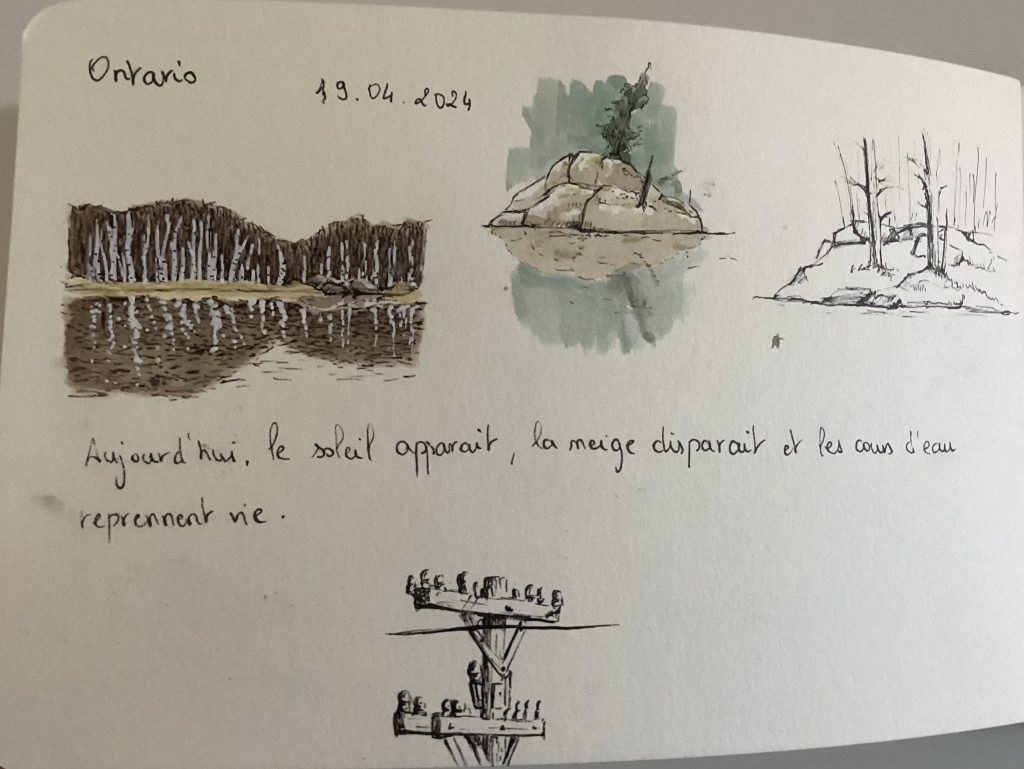 Ontario
19.04.2024
Aujourd'hui, le soleil apparait, la neige disparait et les cours d'eau
reprennent vie.